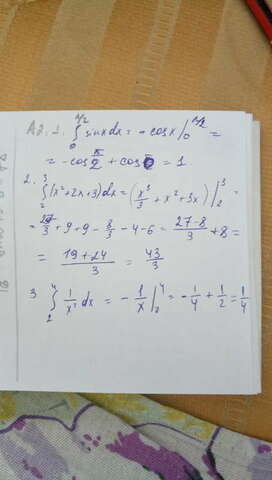 А2. 1. ∫₀^{π/2} sinx dx = -cosx |₀^{π/2} =
= -cos π/2 + cos 0 = 1
2. ∫₂³ (x²+2x+3)dx = (x³/3 + x² + 3x) |₂³ =
= 27/3 + 9 + 9 - 8/3 - 4 - 6 = (27-8)/3 + 8 =
= (19+24)/3 = 43/3
3 ∫₂⁴ 1/x² dx = - 1/x |₂⁴ = - 1/4 + 1/2 = 1/4